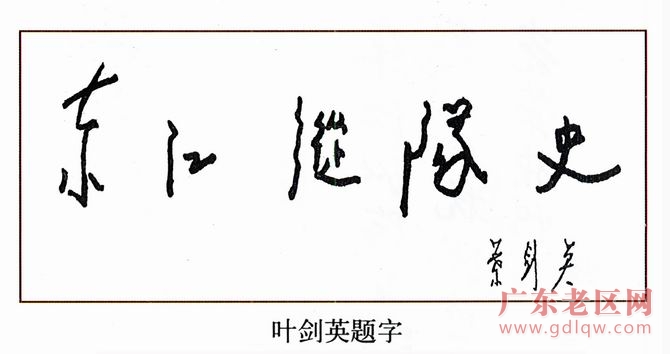 东江縱隊史
葉剑英
广东老区网
www.gdlqw.com
叶剑英题字